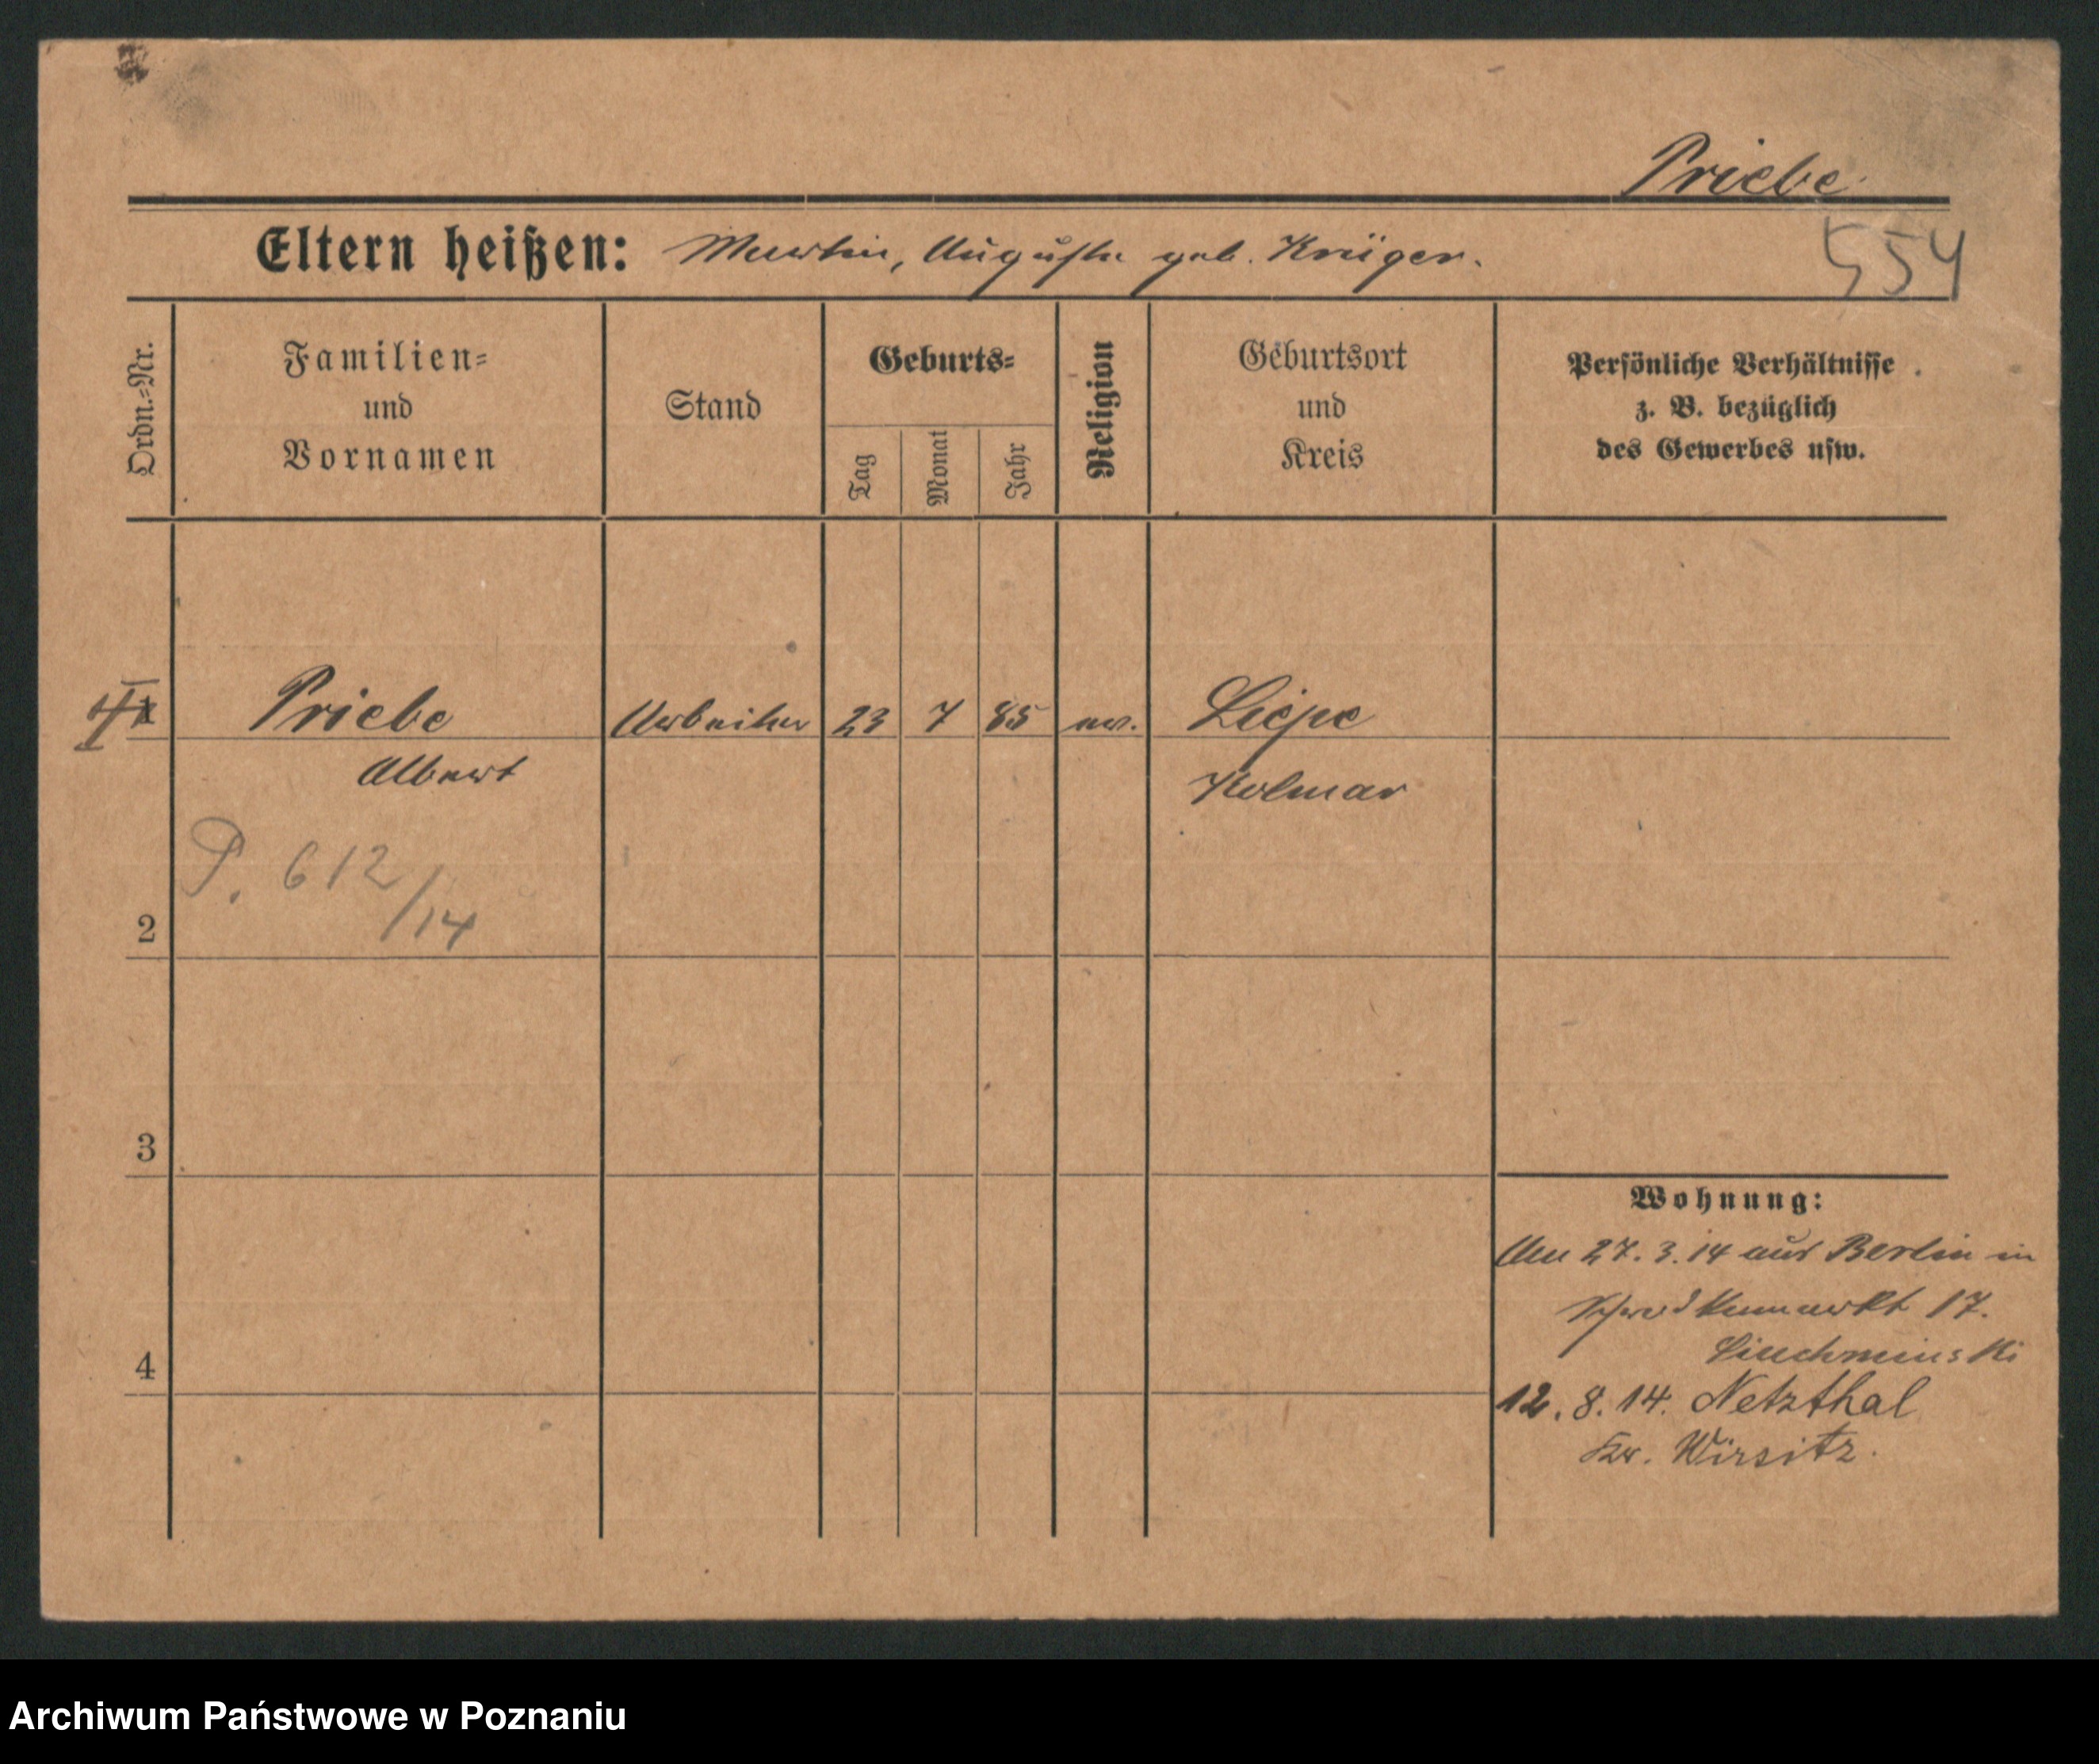 Priebe
Eltern heißen: Martin, Auguste geb. Krüger.
554
Ordn.-Nr.
Familien-
und
Vornamen
Stand
Geburts-
Tag
Monat
Jahr
Religion
Geburtsort
und
Kreis
Persönliche Verhältnisse
z. B. bezüglich
des Gewerbes usw.
Priebe Arbeiter 23 7 85 ev. Liepe
Albert Kolmar
P. 612/14
2
3
4
Wohnung:
27. 3. 14 aus Berlin in
17.
12. 8. 14. Netzthal
Kr. Wirsitz.
Archiwum Państwowe w Poznaniu